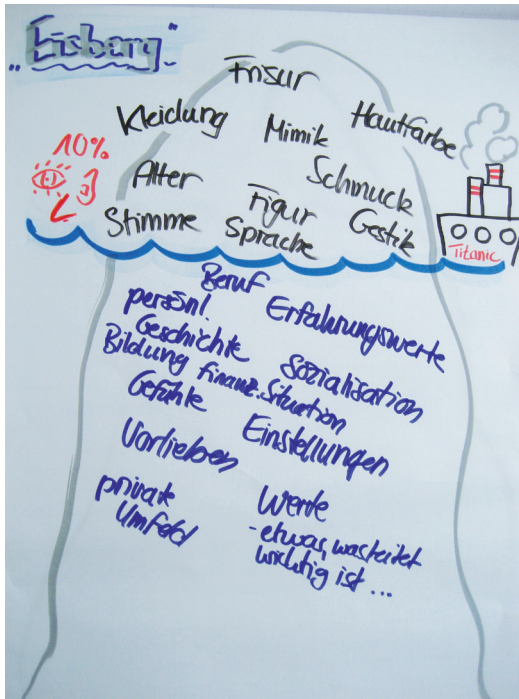 "Eisberg"
Frisur
Kleidung Mimik Hautfarbe
10%
Alter Schmuck
Stimme Figur Gestik
Sprache
Titanic
Beruf
persönl. Erfahrungswerte
Geschichte Sozialisation
Bildung finanz. Situation
Gefühle Einstellungen
Vorlieben
private Werte
Umfeld - etwas, was
wichtig ist ...